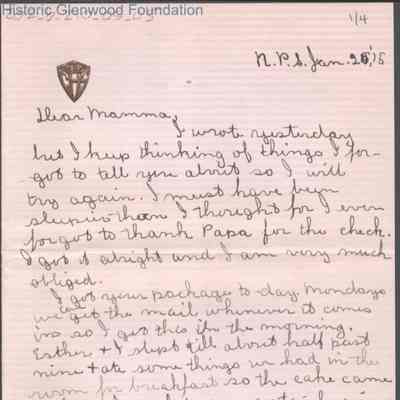 Historic Glenwood Foundation
1/4
N.P.S. Jan. 25, '15
Dear Mamma,
I wrote yesterday
but I keep thinking of things I for-
got to tell you about so I will
try again. I must have been
sleepier than I thought for I even
forgot to thank Papa for the check.
I got it alright and I am very much
obliged.
I got your package to-day Mondays
we get the mail whenever it comes
in so I got this in the morning.
Esther + I slept till about half past
nine + ate some things we had in the
room for breakfast so the cake came